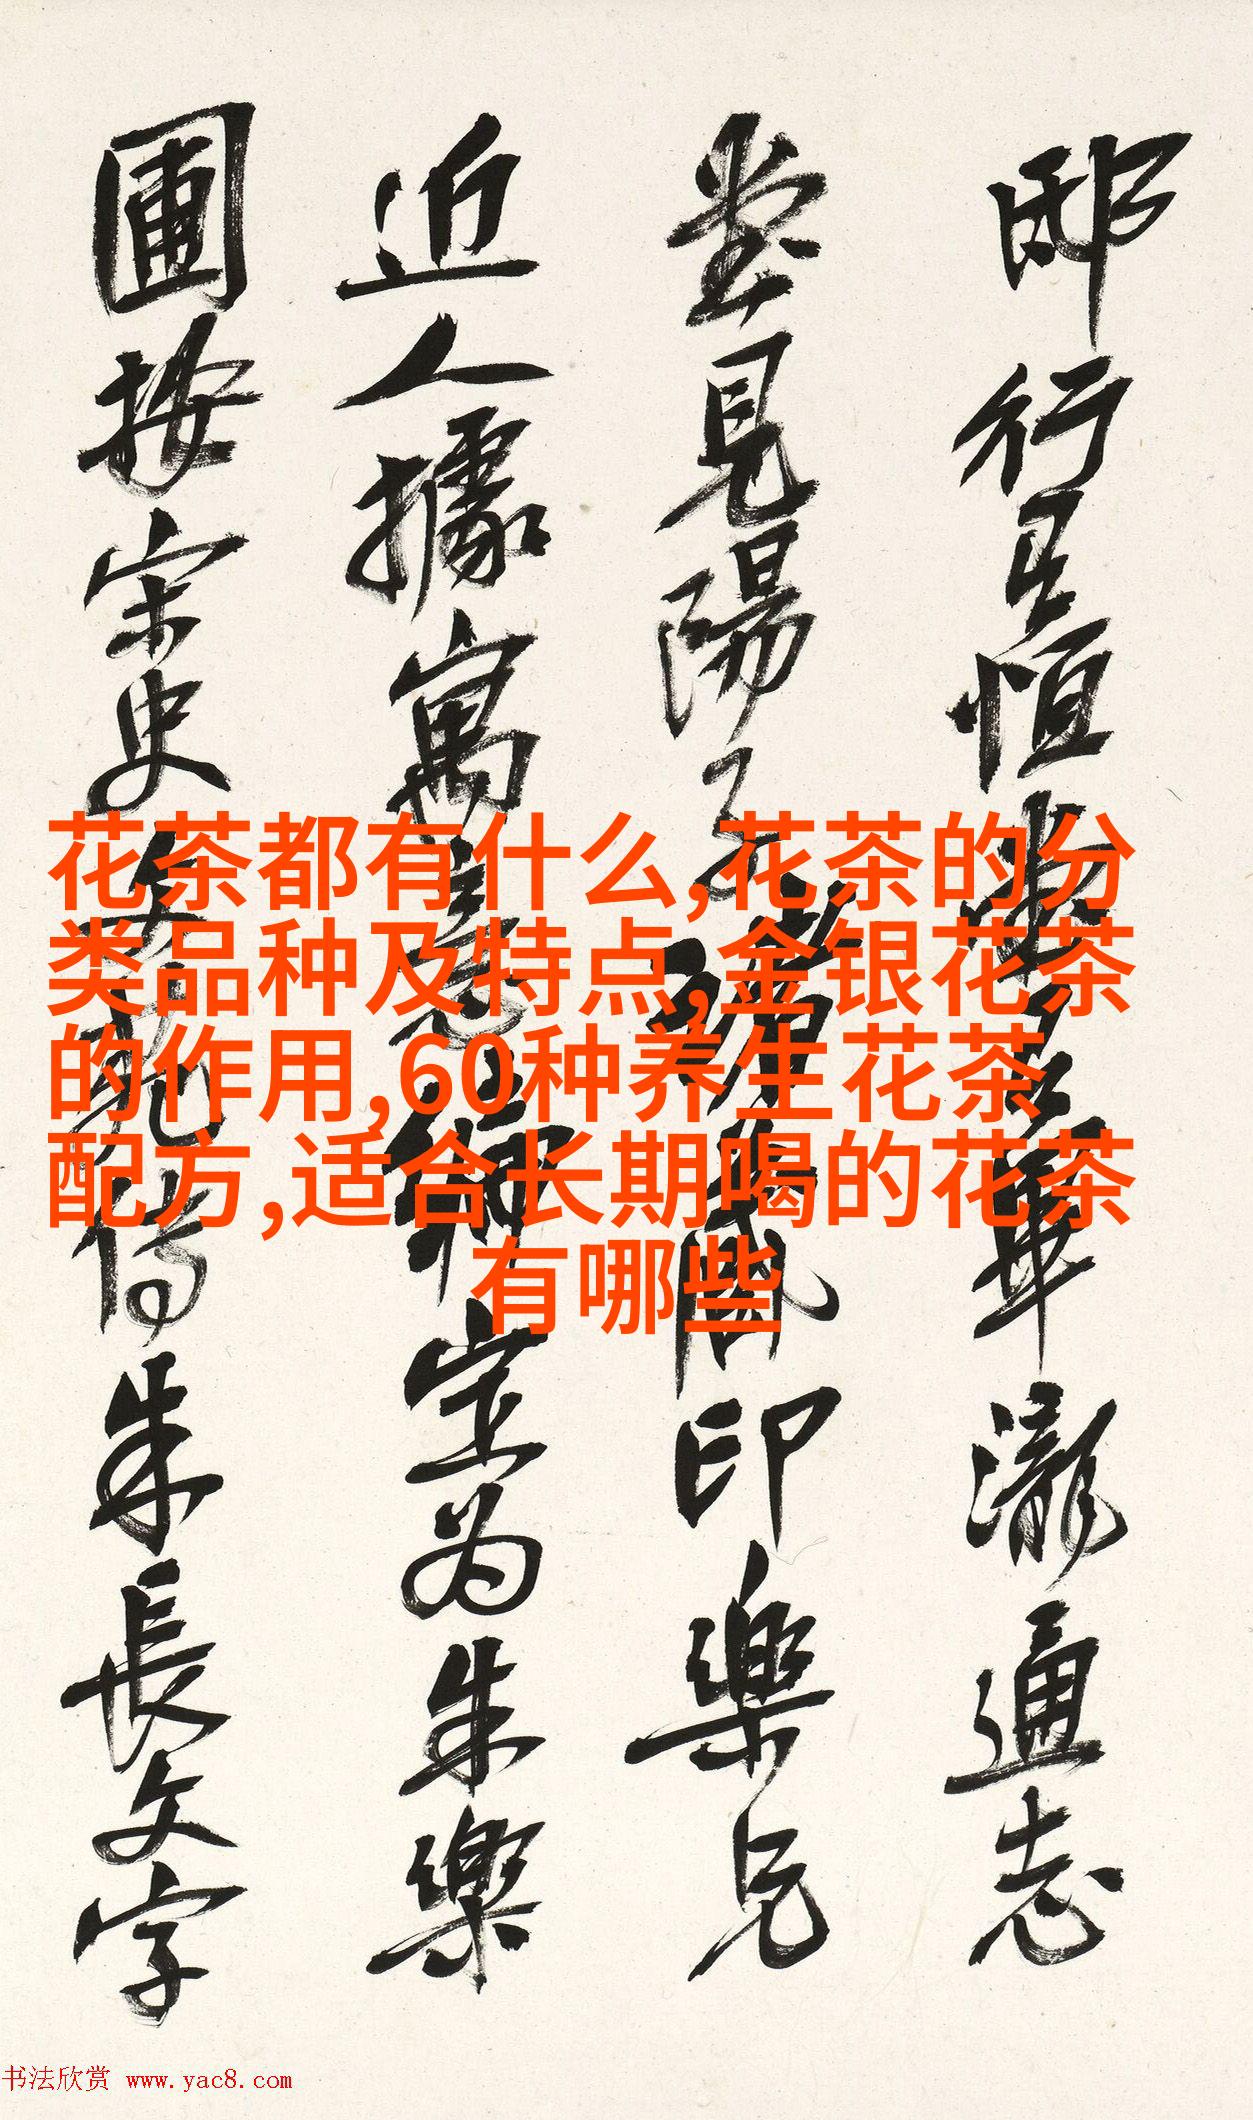 邸行呈恒
瀧通志
堂見陽子
印樂兄
近人據寓意
定為朱樂
圃按宋史文苑傳朱長文字
花茶都有什么,花茶的分
类品种及特点,金银花茶
的作用,60种养生花茶
配方,适合长期喝的花茶
有哪些
书法欣赏 www.yac8.com